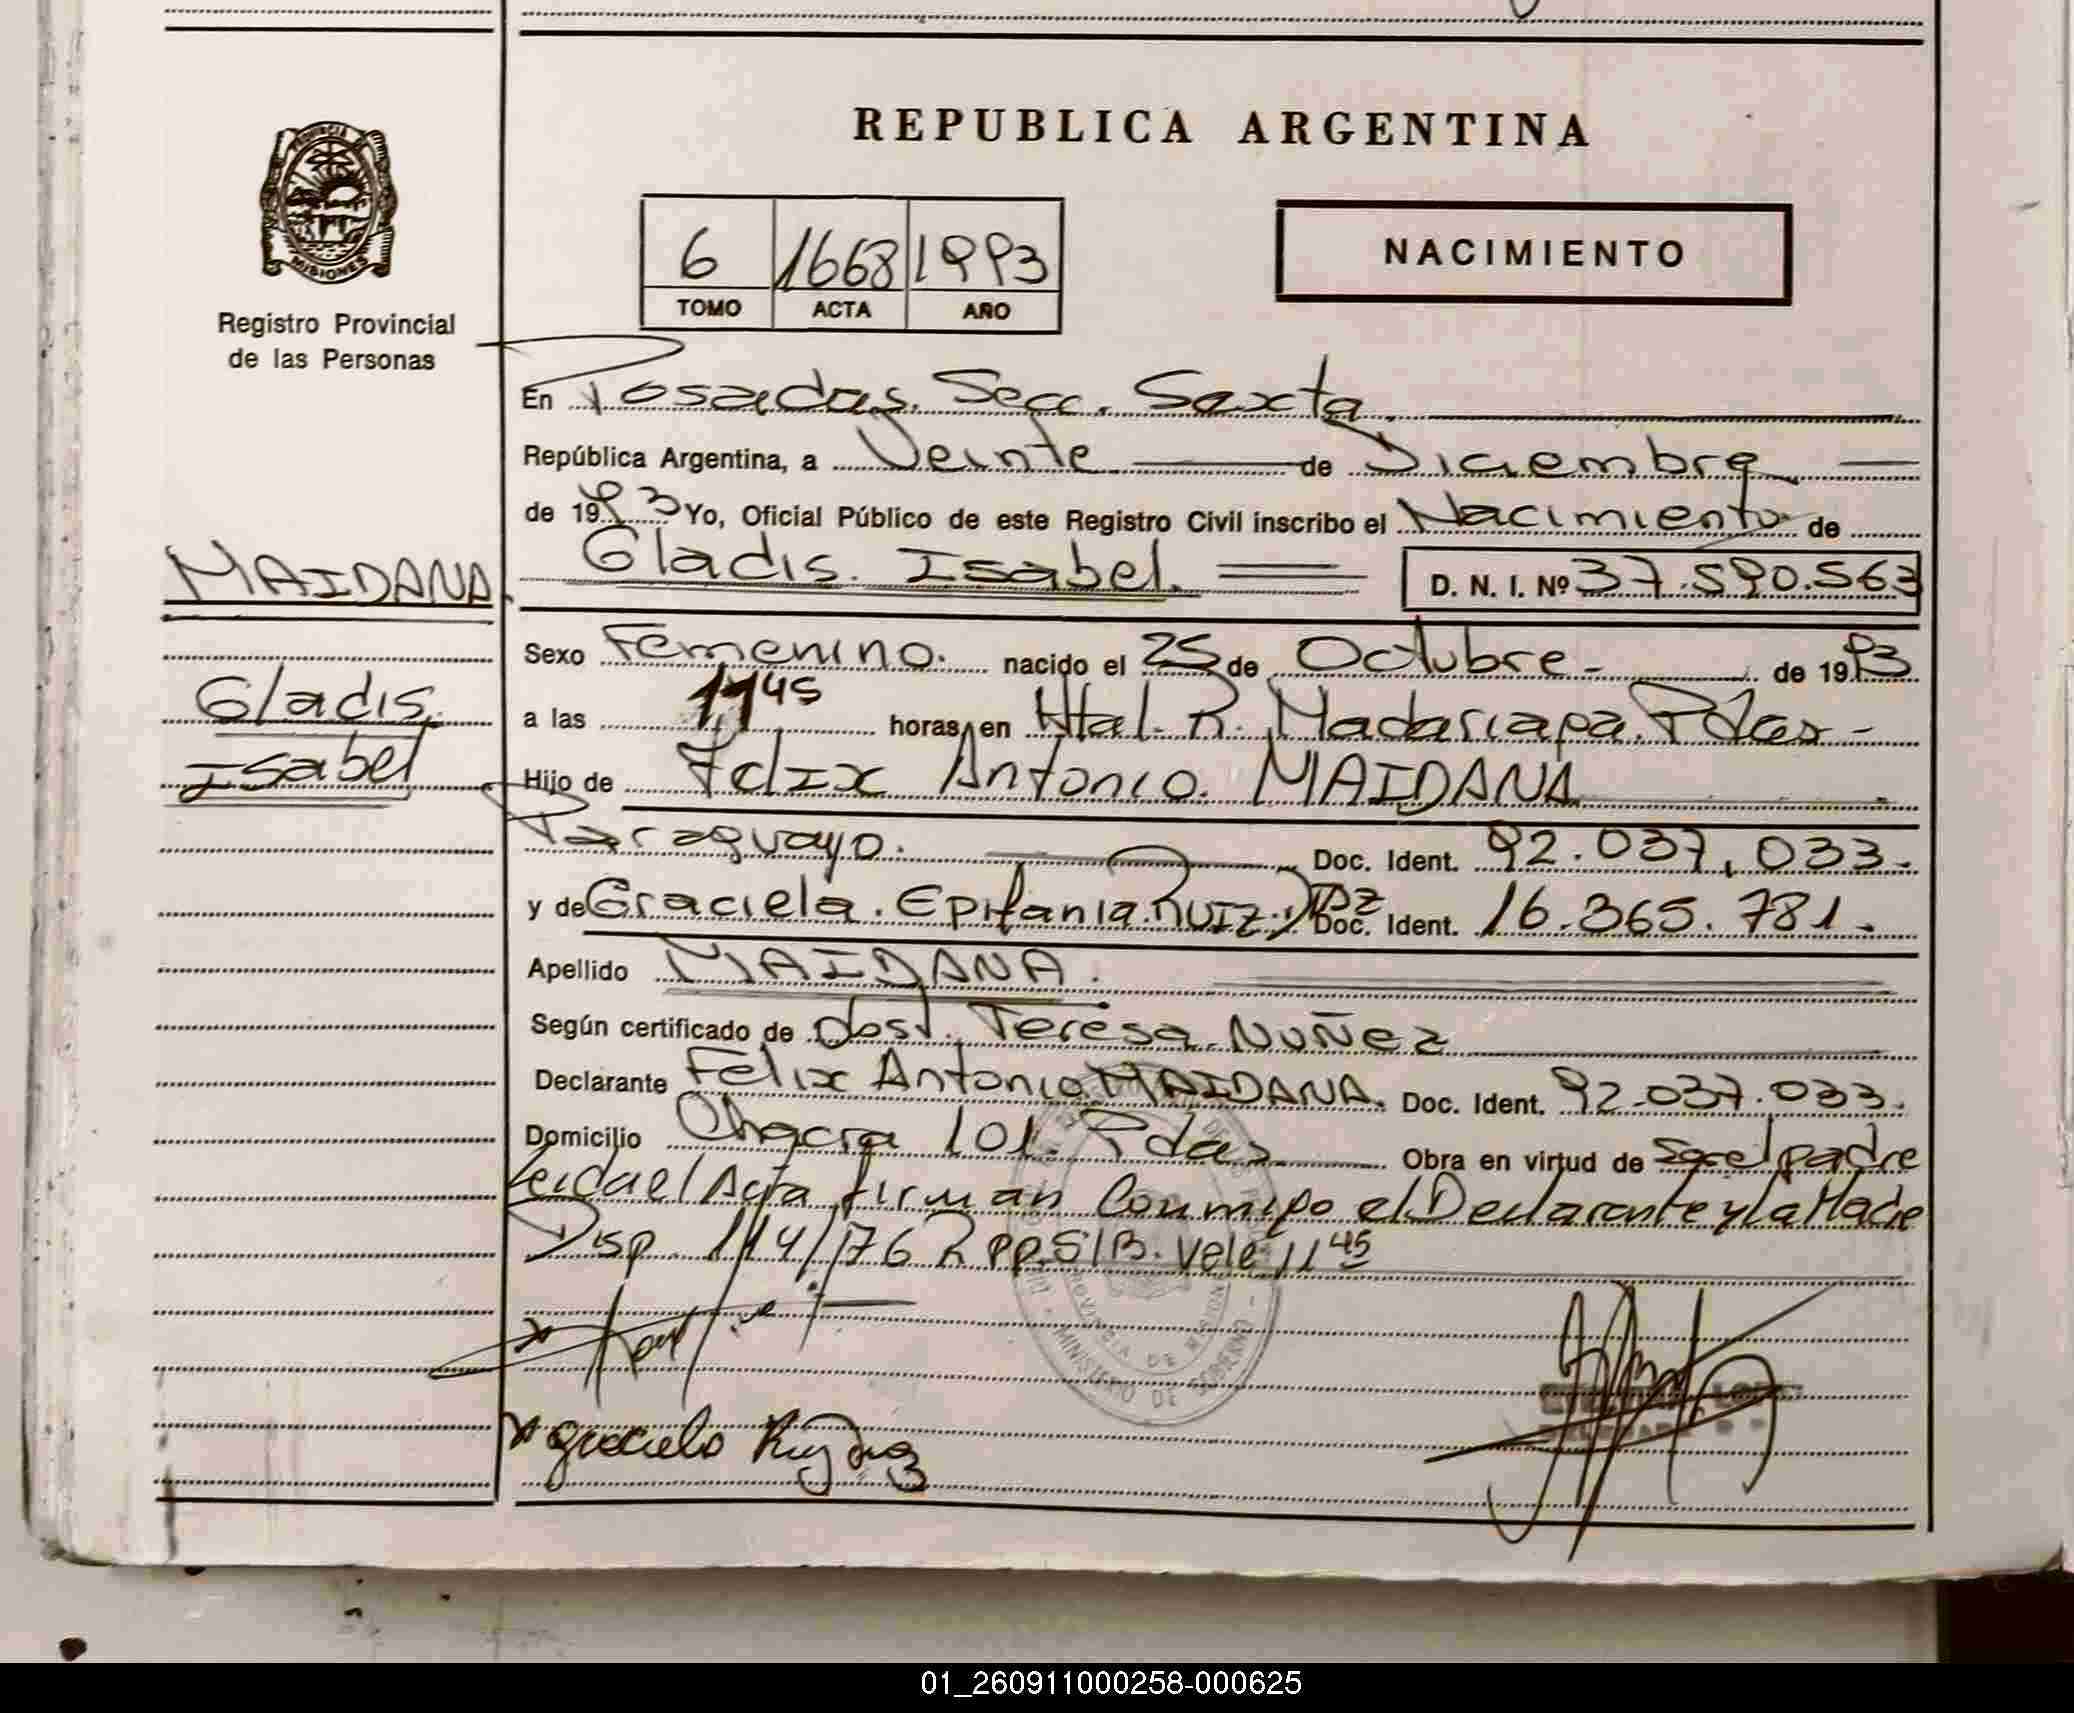 REPUBLICA ARGENTINA
PROVINCIA
MISIONES
Registro Provincial
de las Personas
6 1668 1993
TOMO ACTA AÑO
NACIMIENTO
En Posadas. Secc. Sexta
República Argentina, a Veinte de Diciembre
de 1993 Yo, Oficial Público de este Registro Civil inscribo el Nacimiento de
MAIDANA
Gladis. Isabel. D. N. I. Nº 37.590.563
Sexo Femenino. nacido el 25 de Octubre de 1993
Gladis
Isabel
a las 11 45 horas, en Htal. R. Madariaga. Pdas
Hijo de Felix Antonio. MAIDANA
Paraguayo. Doc. Ident. 92.037.033.
y de Graciela. Epifania. Ruiz. Doc. Ident. 16.365.781.
Apellido MAIDANA.
Según certificado de Obst. Teresa. Nuñez
Declarante Felix Antonio MAIDANA. Doc. Ident. 92.037.033.
Domicilio Chacra 101. Pdas Obra en virtud de ser el padre
Leida el Acta firman Conmigo el Declarante y la Madre
Disp 114/76 R.P.P. S/B. Vale 11 45
MINISTERIO DE GOBIERNO
PROVINCIA DE MISIONES
01_260911000258-000625